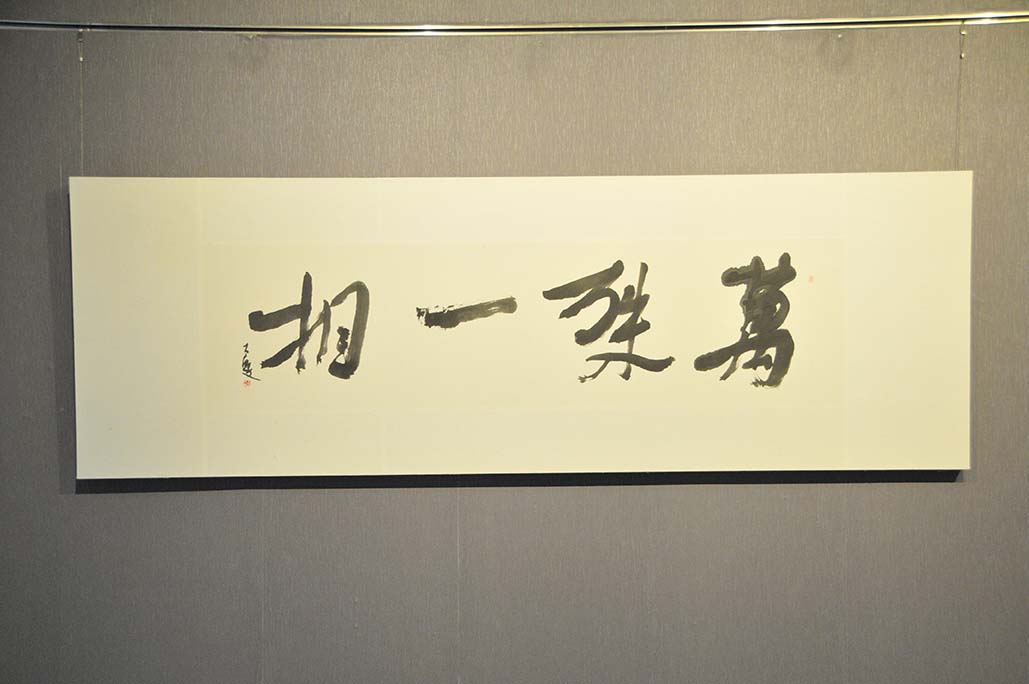 萬殊一相